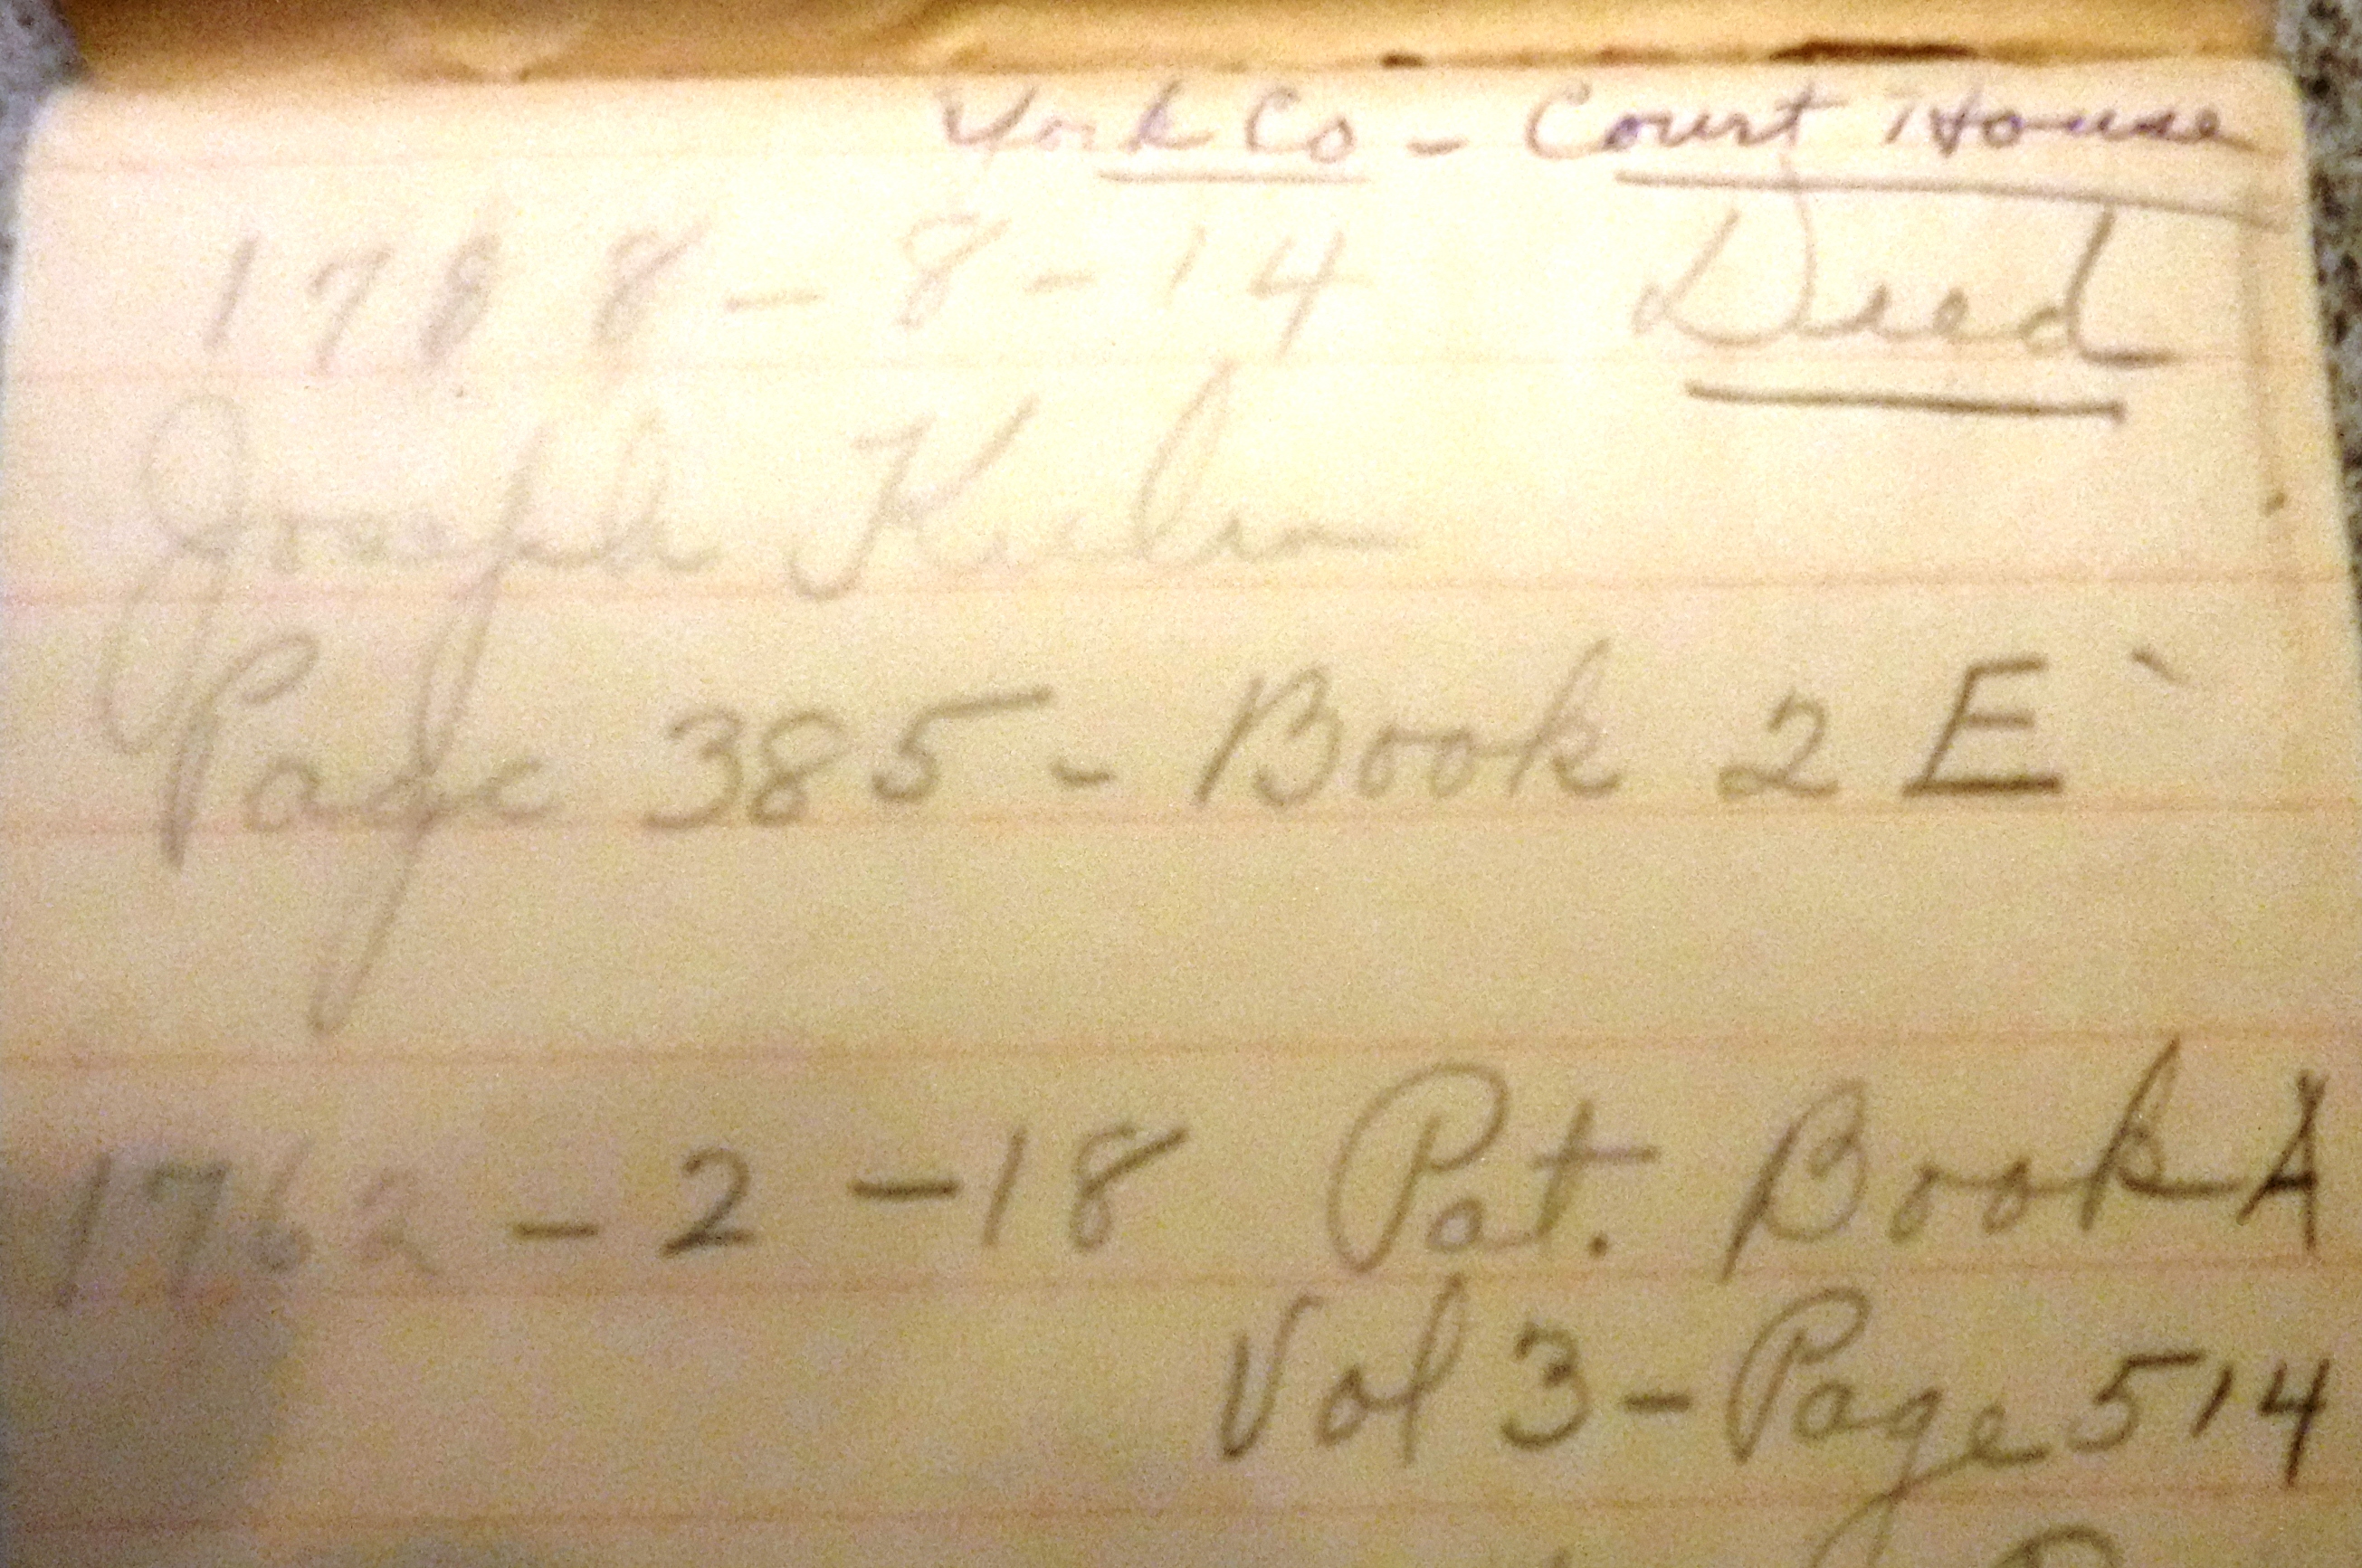 York Co - Court House
1788 - 8 - 14 Deed
Joseph
Page 385 - Book 2 E
1762 - 2 - 18 Pat. Book A
Vol 3 - Page 514